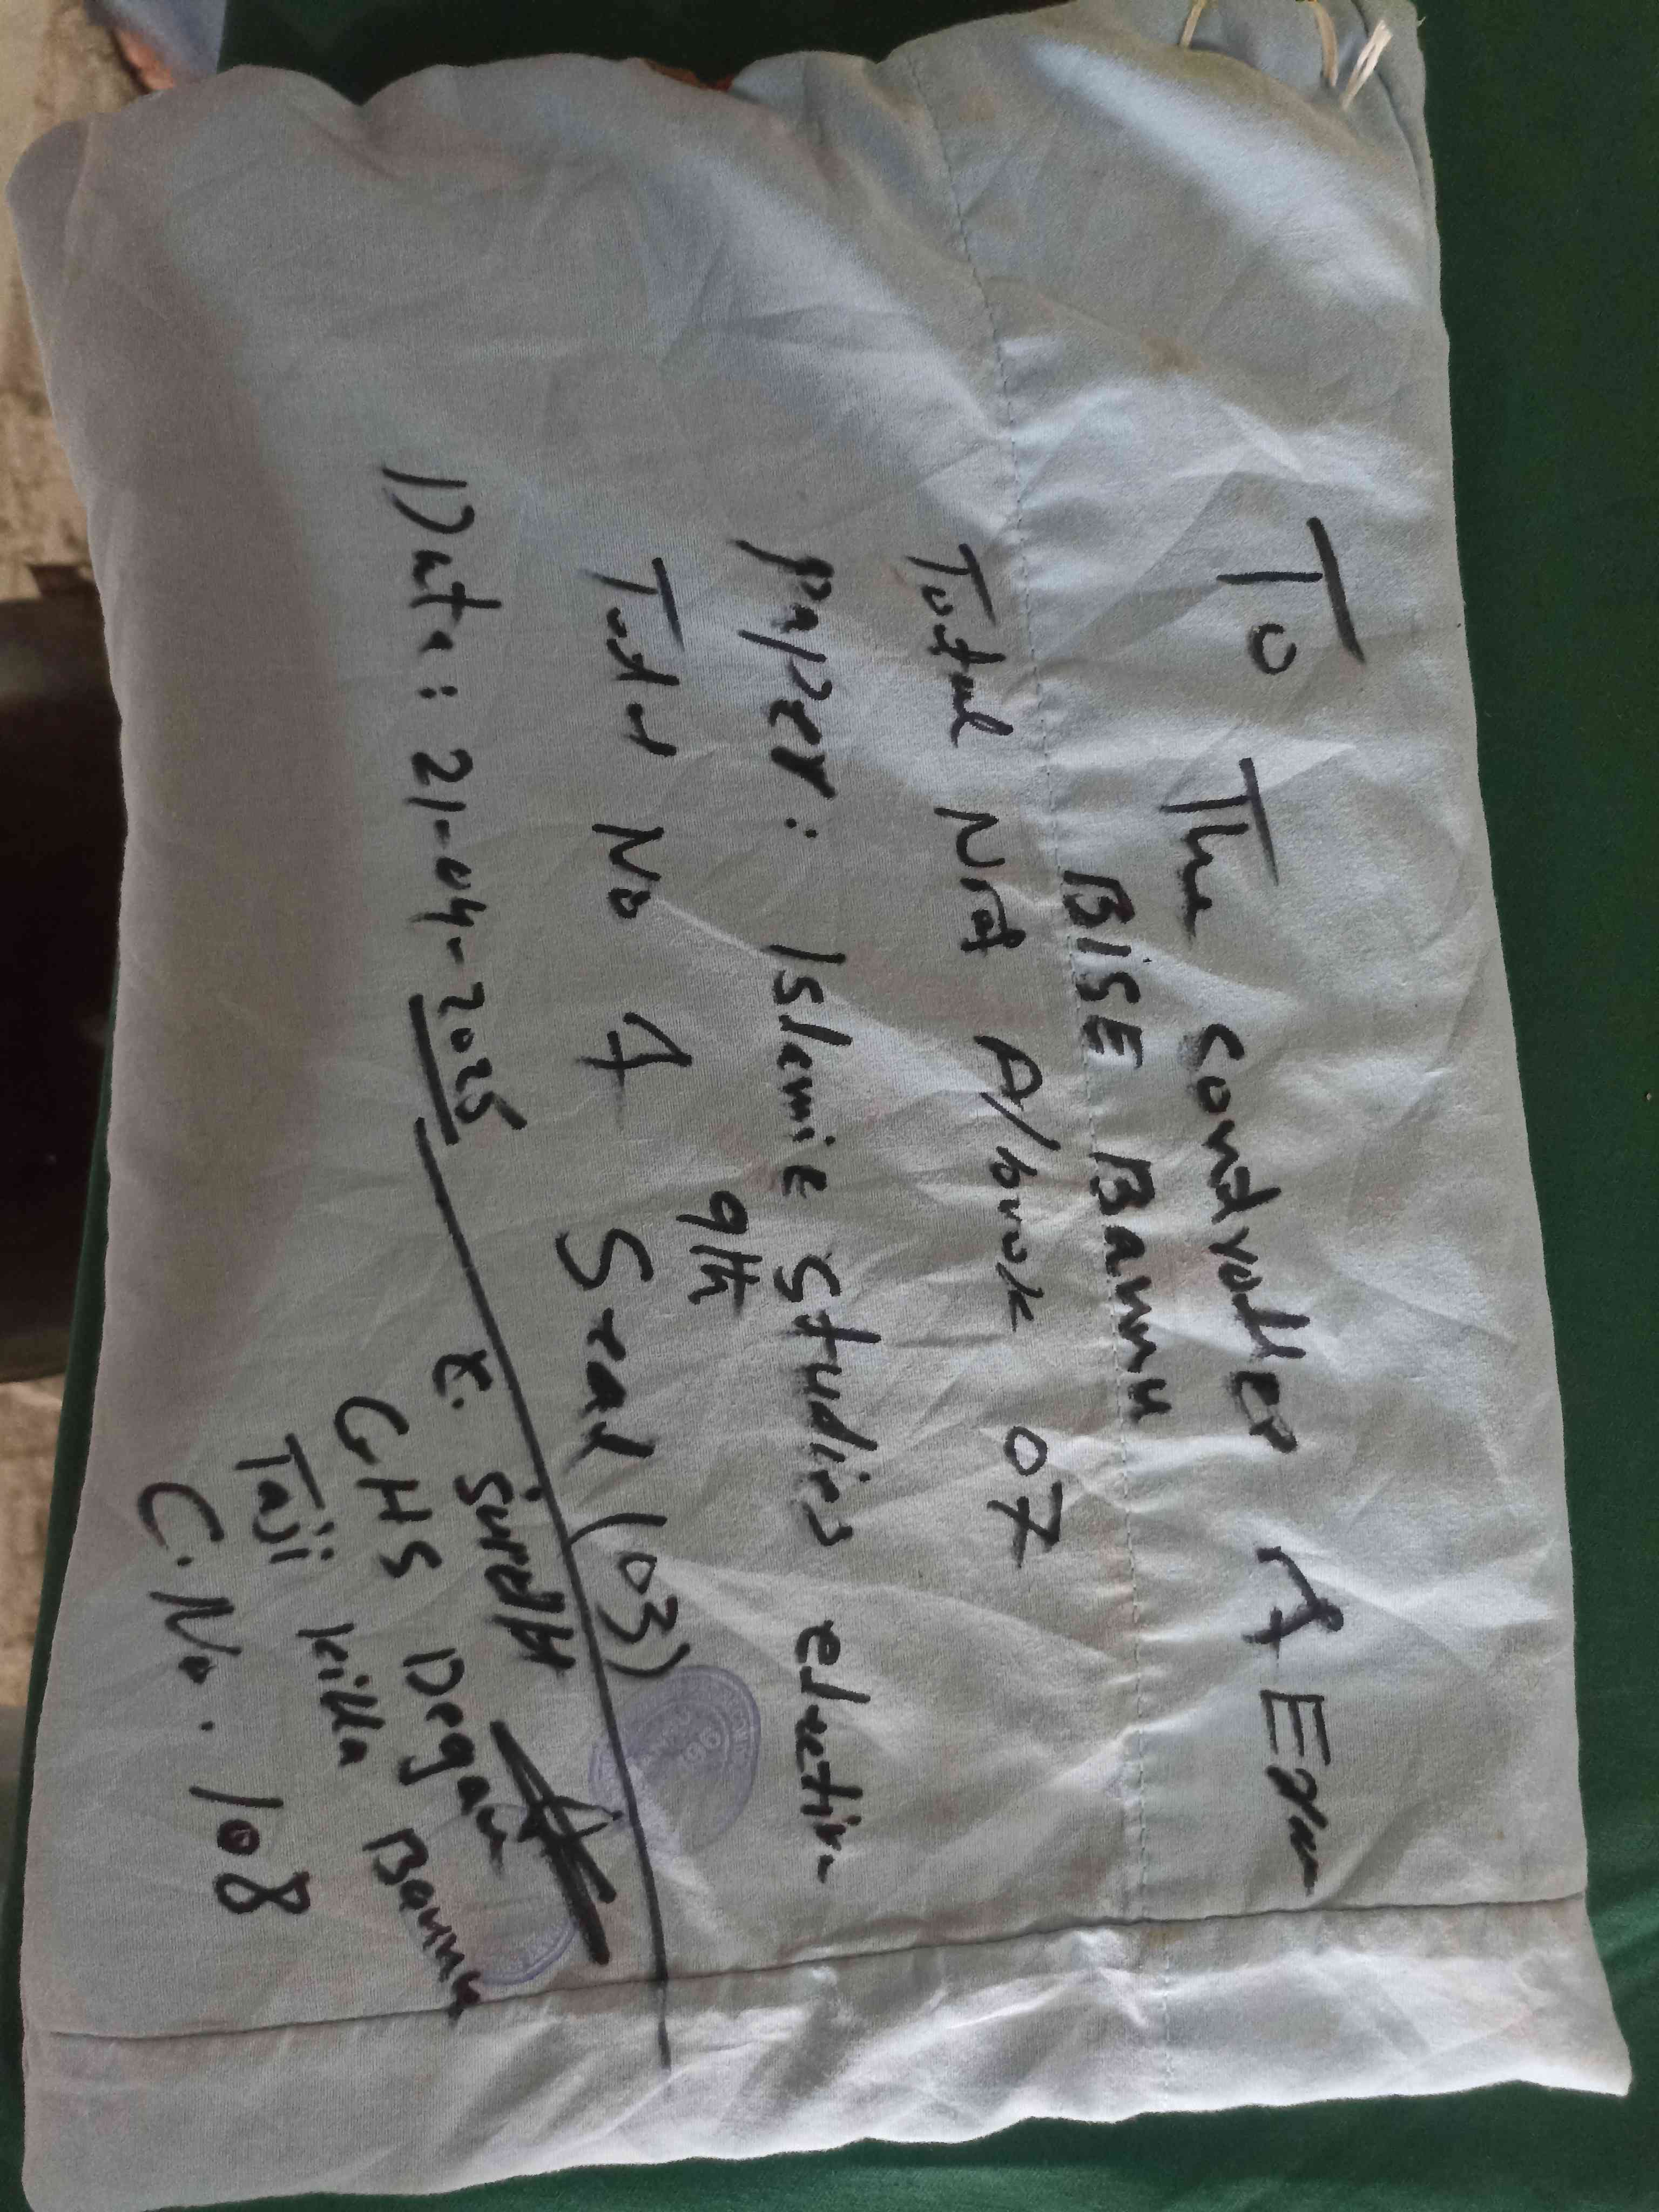 To The Controller of Exam
BISE Bannu
Total No of A/book 07
Paper: Islamic Studies elective
9th
Total No of Seal (03)
Date: 21-04-2025
GHS Degan Bannu
Taji killa
C.No. 108